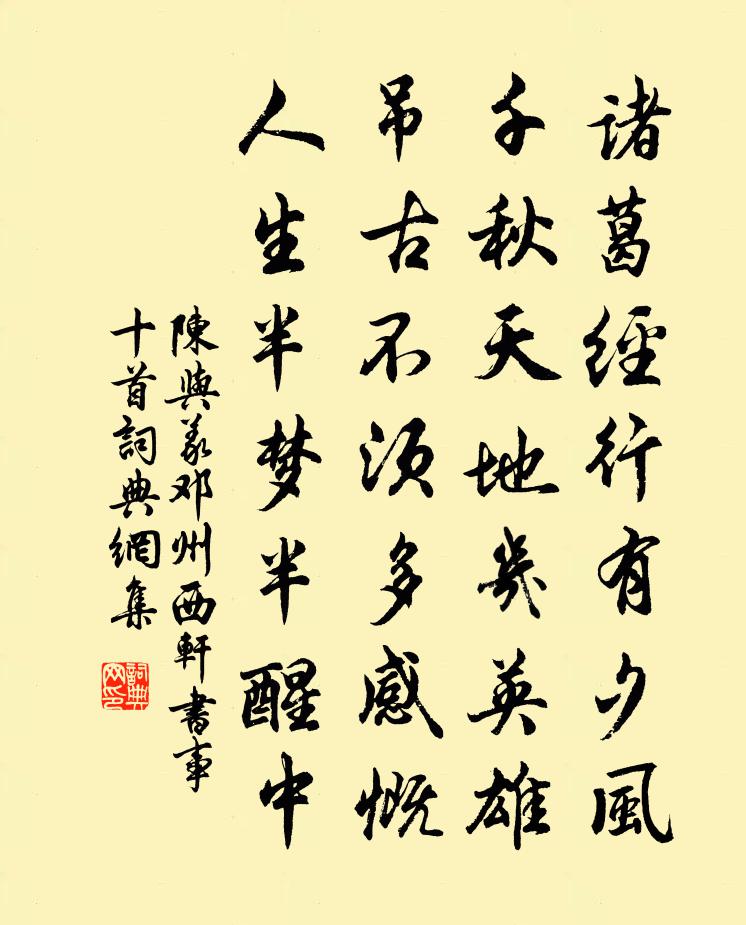 諸葛經行有夕風
千秋天地幾英雄
吊古不須多感慨
人生半梦半醒中
陳與義邓州西軒書事
十首詞典網集
詞典网印